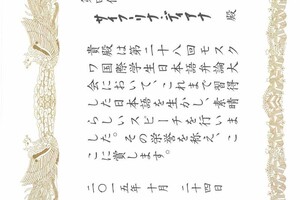 サイフーリナ・ディアナ 殿
貴殿は第二十八回モスク
ワ国際学生日本語弁論大
会において、これまで習得
した日本語を生かし、素晴
らしいスピーチを行いま
した。その栄誉を称え、こ
こに賞します。
二〇一五年 十月 二十四日